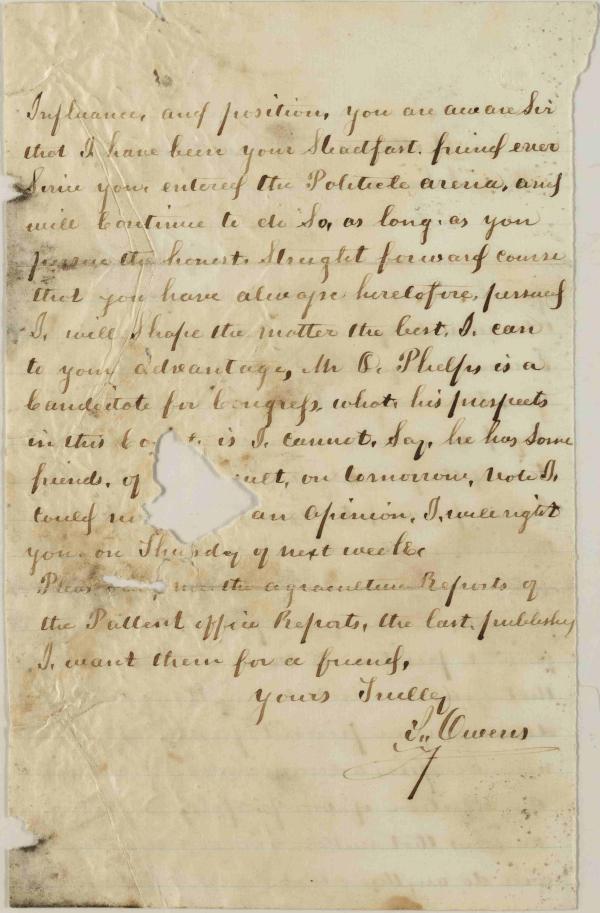 Influance, and position, you are aware Sir
that I have been your Steadfast. friend ever
Sinc you entered the Politicle arena, and
will Continue to do So, as long. as you
pursue the honest. Streight forward course
that you have always heretofore, persued
I. will Shape the matter the best. I. can
to your advantage, Mr O. Phelps is a
Candoitate for Congress. what. his prospects
in this is I. cannot. Say, he has Some
friends, of on tomorrow, vote I.
Could an Opinion. I. will right
you on Thusday of next week
the agraculture Reports of
the Pattent office Reports, the last. publishy
I. want them for a friend,
Yours Trulley
Owens